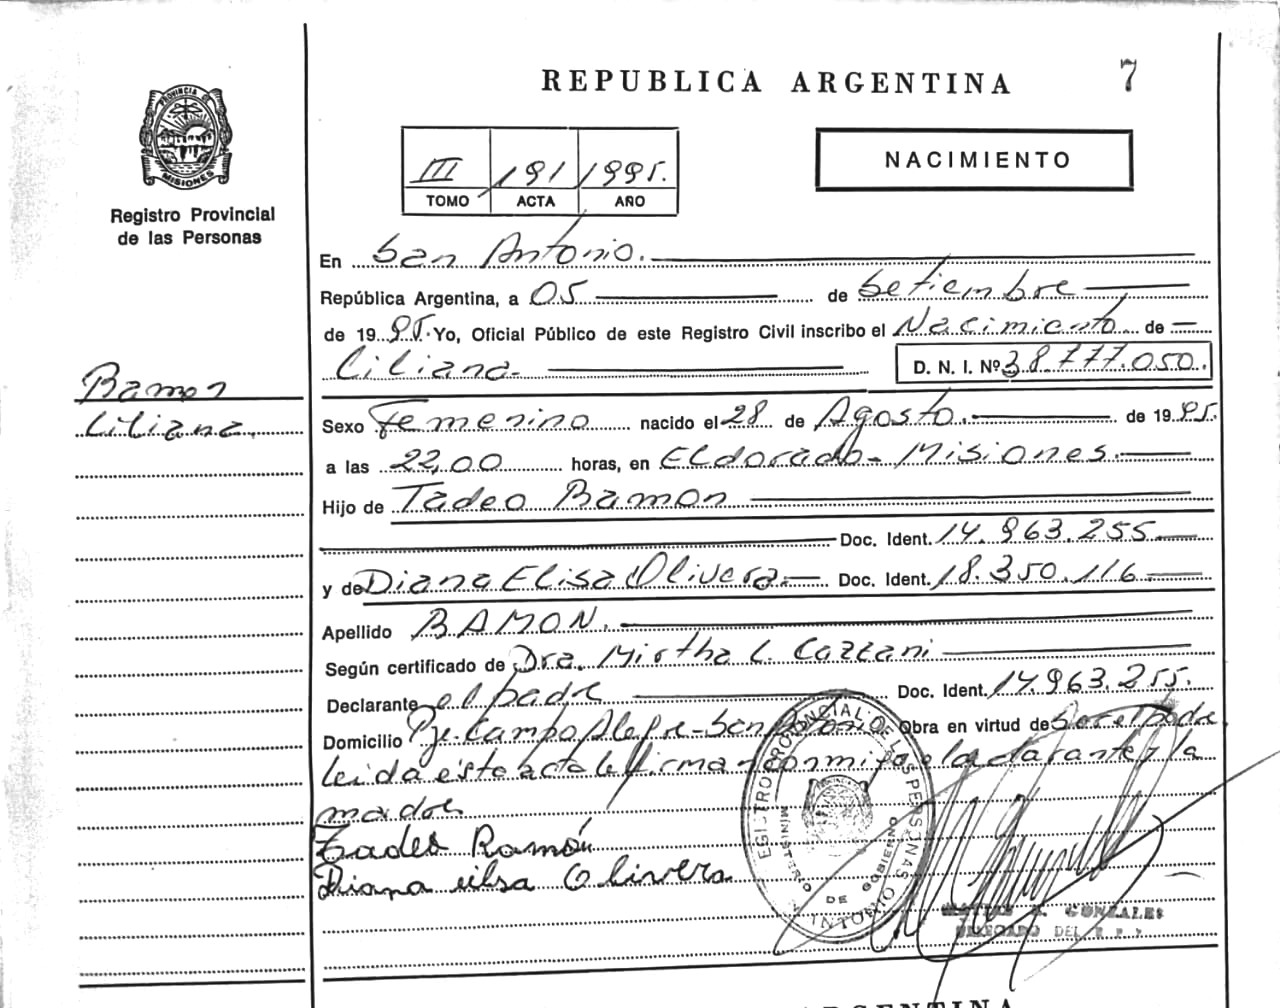 REPUBLICA ARGENTINA
7
PROVINCIA
MISIONES
Registro Provincial
de las Personas
III 191 1995.
TOMO ACTA AÑO
NACIMIENTO
En San Antonio.
República Argentina, a 05 de Setiembre
de 1995. Yo, Oficial Público de este Registro Civil inscribo el Nacimiento de
Liliana D. N. I. Nº 38.777.050.
Ramon
Liliana.
Sexo Femenino nacido el 28 de Agosto. de 1995.
a las 22,00 horas, en Eldorado - Misiones.
Hijo de Tadeo Ramon
Doc. Ident. 14.963.255
y de Diana Elisa Olivera Doc. Ident. 18.350.116
Apellido RAMON.
Según certificado de Dra. Mirtha L. Cazzani
Declarante el padre Doc. Ident. 14.963.255.
Domicilio Pje. Campo Alegre - San Antonio Obra en virtud de Ser el padre
leida esta acta la firman conmigo el declarante y la
madre
Tadeo Ramón
Diana Elsa Olivera
REGISTRO PROVINCIAL DE LAS PERSONAS
MINISTERIO DE GOBIERNO
GONZALES
DELEGADO DEL R. P. P.
ARGENTINA